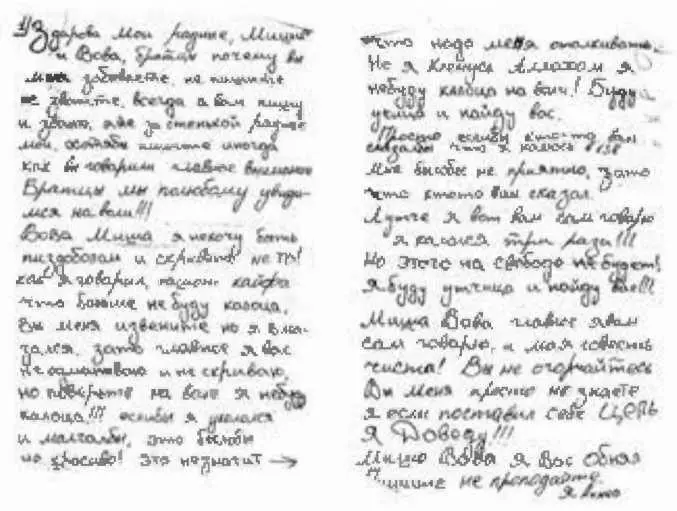 Здарова Мои радные, Миша
и Вова, братцы почему вы
меня забываете, не пишите
не званите, всегда я вам пишу
и званю, я же за стенькой радные
мои, хатябы пишите иногда
как вы говарили главное внимание
Братцы мы полюбому увиди-
мся на воли!!!
Вова Миша я нехочу быть
пиздоболом и скрывать! не то!
как я говарил,
что больше не буду калоца,
Вы меня извените но я
зато главное я вас
не обманываю и не скрываю,
но поверьте на воле я небуду
калоца!!! еслибы я укололся
и малчалбы, это былобы
не красиво! Это незначит →
что надо меня оталкивать,
Но я Клянусь Аллахом я
небуду калоца на воли! Буду
учица и найду вас.
Просто еслибы ктото вам
сказалбы что я колюсь
Мне былобы не приятно, зато
что ктото вам сказал.
Лутче я вот вам сам говарю
я калолся три раза!!!
Но этого на свободе не будет!
Я буду учица и найду вас!!!
Миша Вова главное я вам
сам говарю, и моя совесть
чиста! Вы не огорчайтесь
Вы меня просто не знаете
я если поставил себе Цель
Я Доведу!!!
Миша Вова я Вас обнял
пишите не пропадайте.